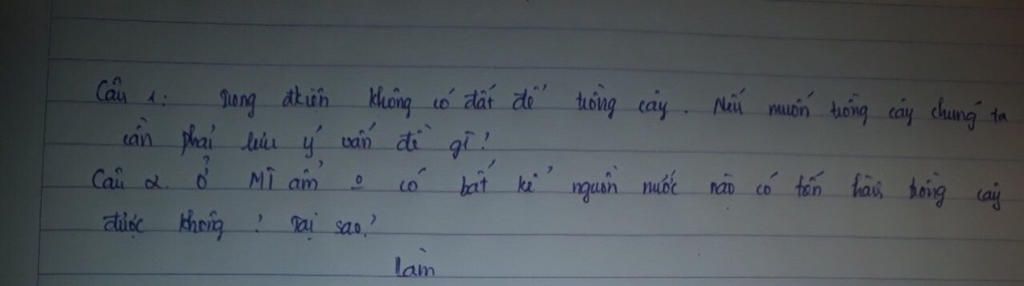 Câu 1: Trong đkiện không có đất để trồng cây. Nếu muốn trồng cây chúng ta
cần phải lưu ý vấn đề gì?
Câu 2. Ở có bất kì nguồn nước nào có trồng cây
được không? Tại sao?
Làm